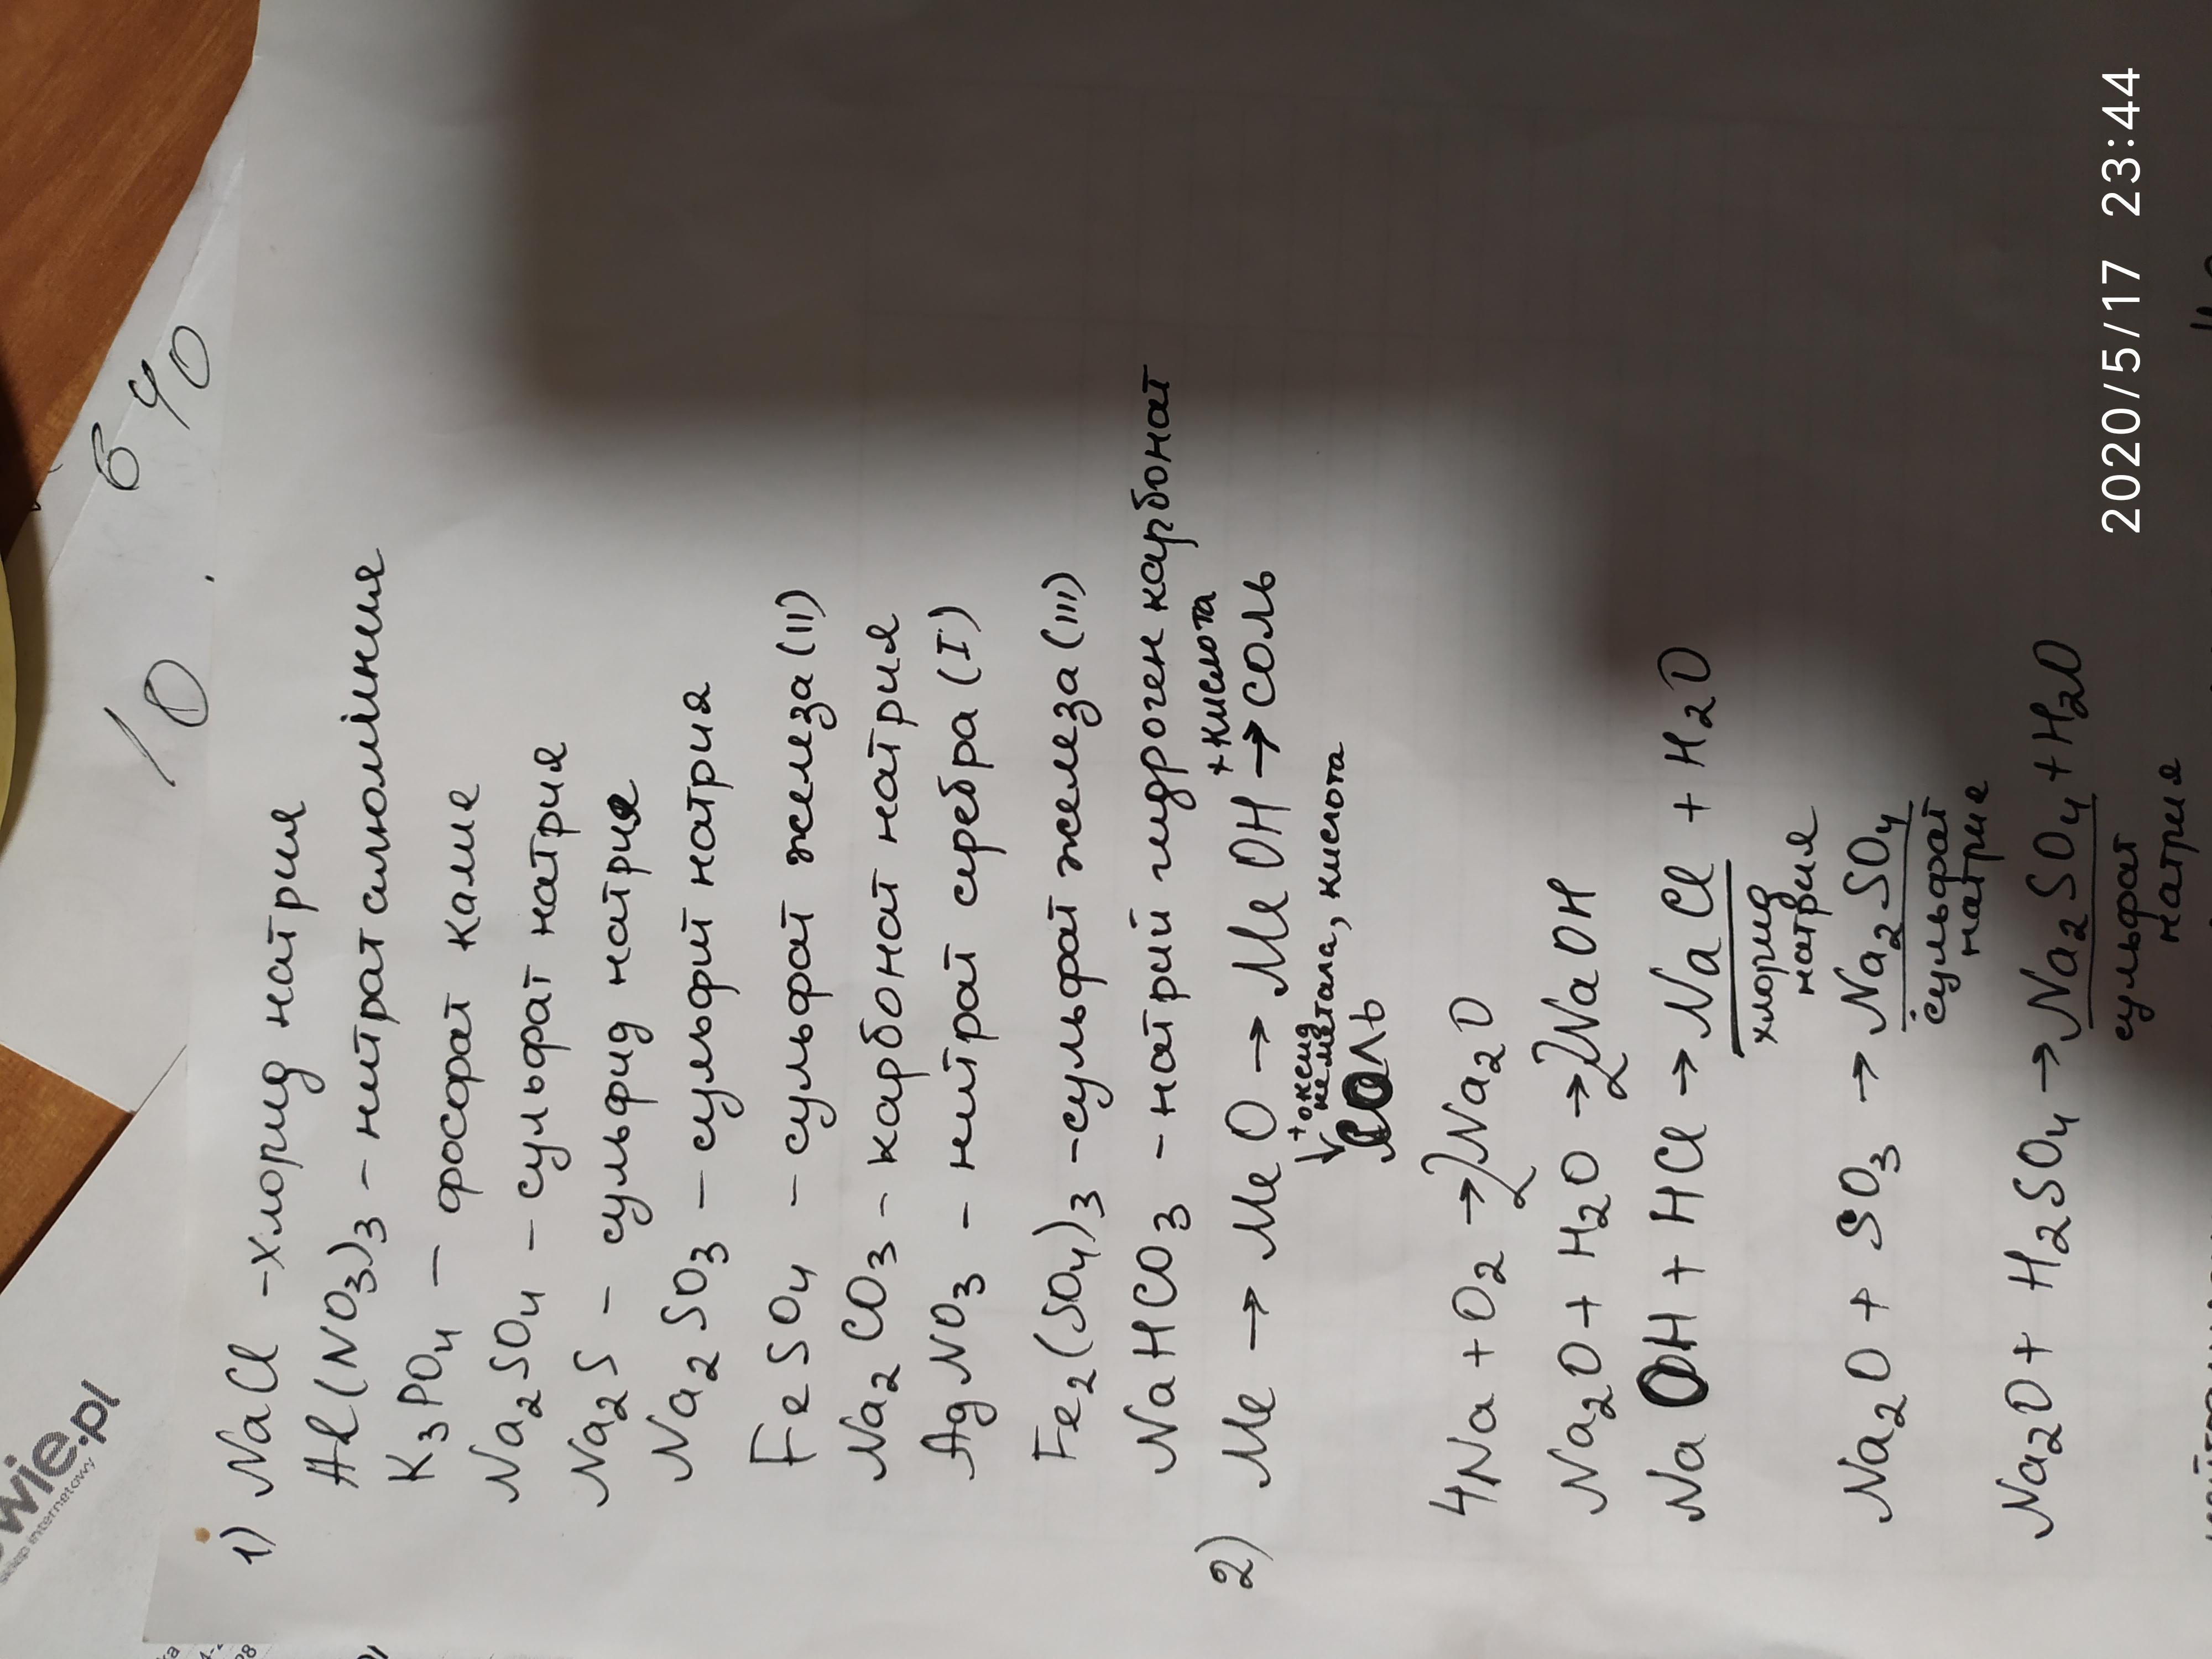 wie.pl
sklep internetowy
10
6 40
1) NaCl - хлорид натрия
Al(NO3)3 - нитрат алюминия
K3PO4 - фосфат калия
Na2SO4 - сульфат натрия
Na2S - сульфид натрия
Na2SO3 - сульфит натрия
FeSO4 - сульфат железа (II)
Na2CO3 - карбонат натрия
AgNO3 - нитрат серебра (I)
Fe2(SO4)3 - сульфат железа (III)
NaHCO3 - натрий гидроген карбонат
2) Me → MeO → MeOH + кислота → соль
+ оксид неметалла, кислота
соль
4Na + O2 → 2Na2O
Na2O + H2O → 2NaOH
NaOH + HCl → NaCl + H2O
хлорид
натрия
Na2O + SO3 → Na2SO4
сульфат
натрия
Na2O + H2SO4 → Na2SO4 + H2O
сульфат
натрия
2020/5/17 23:44